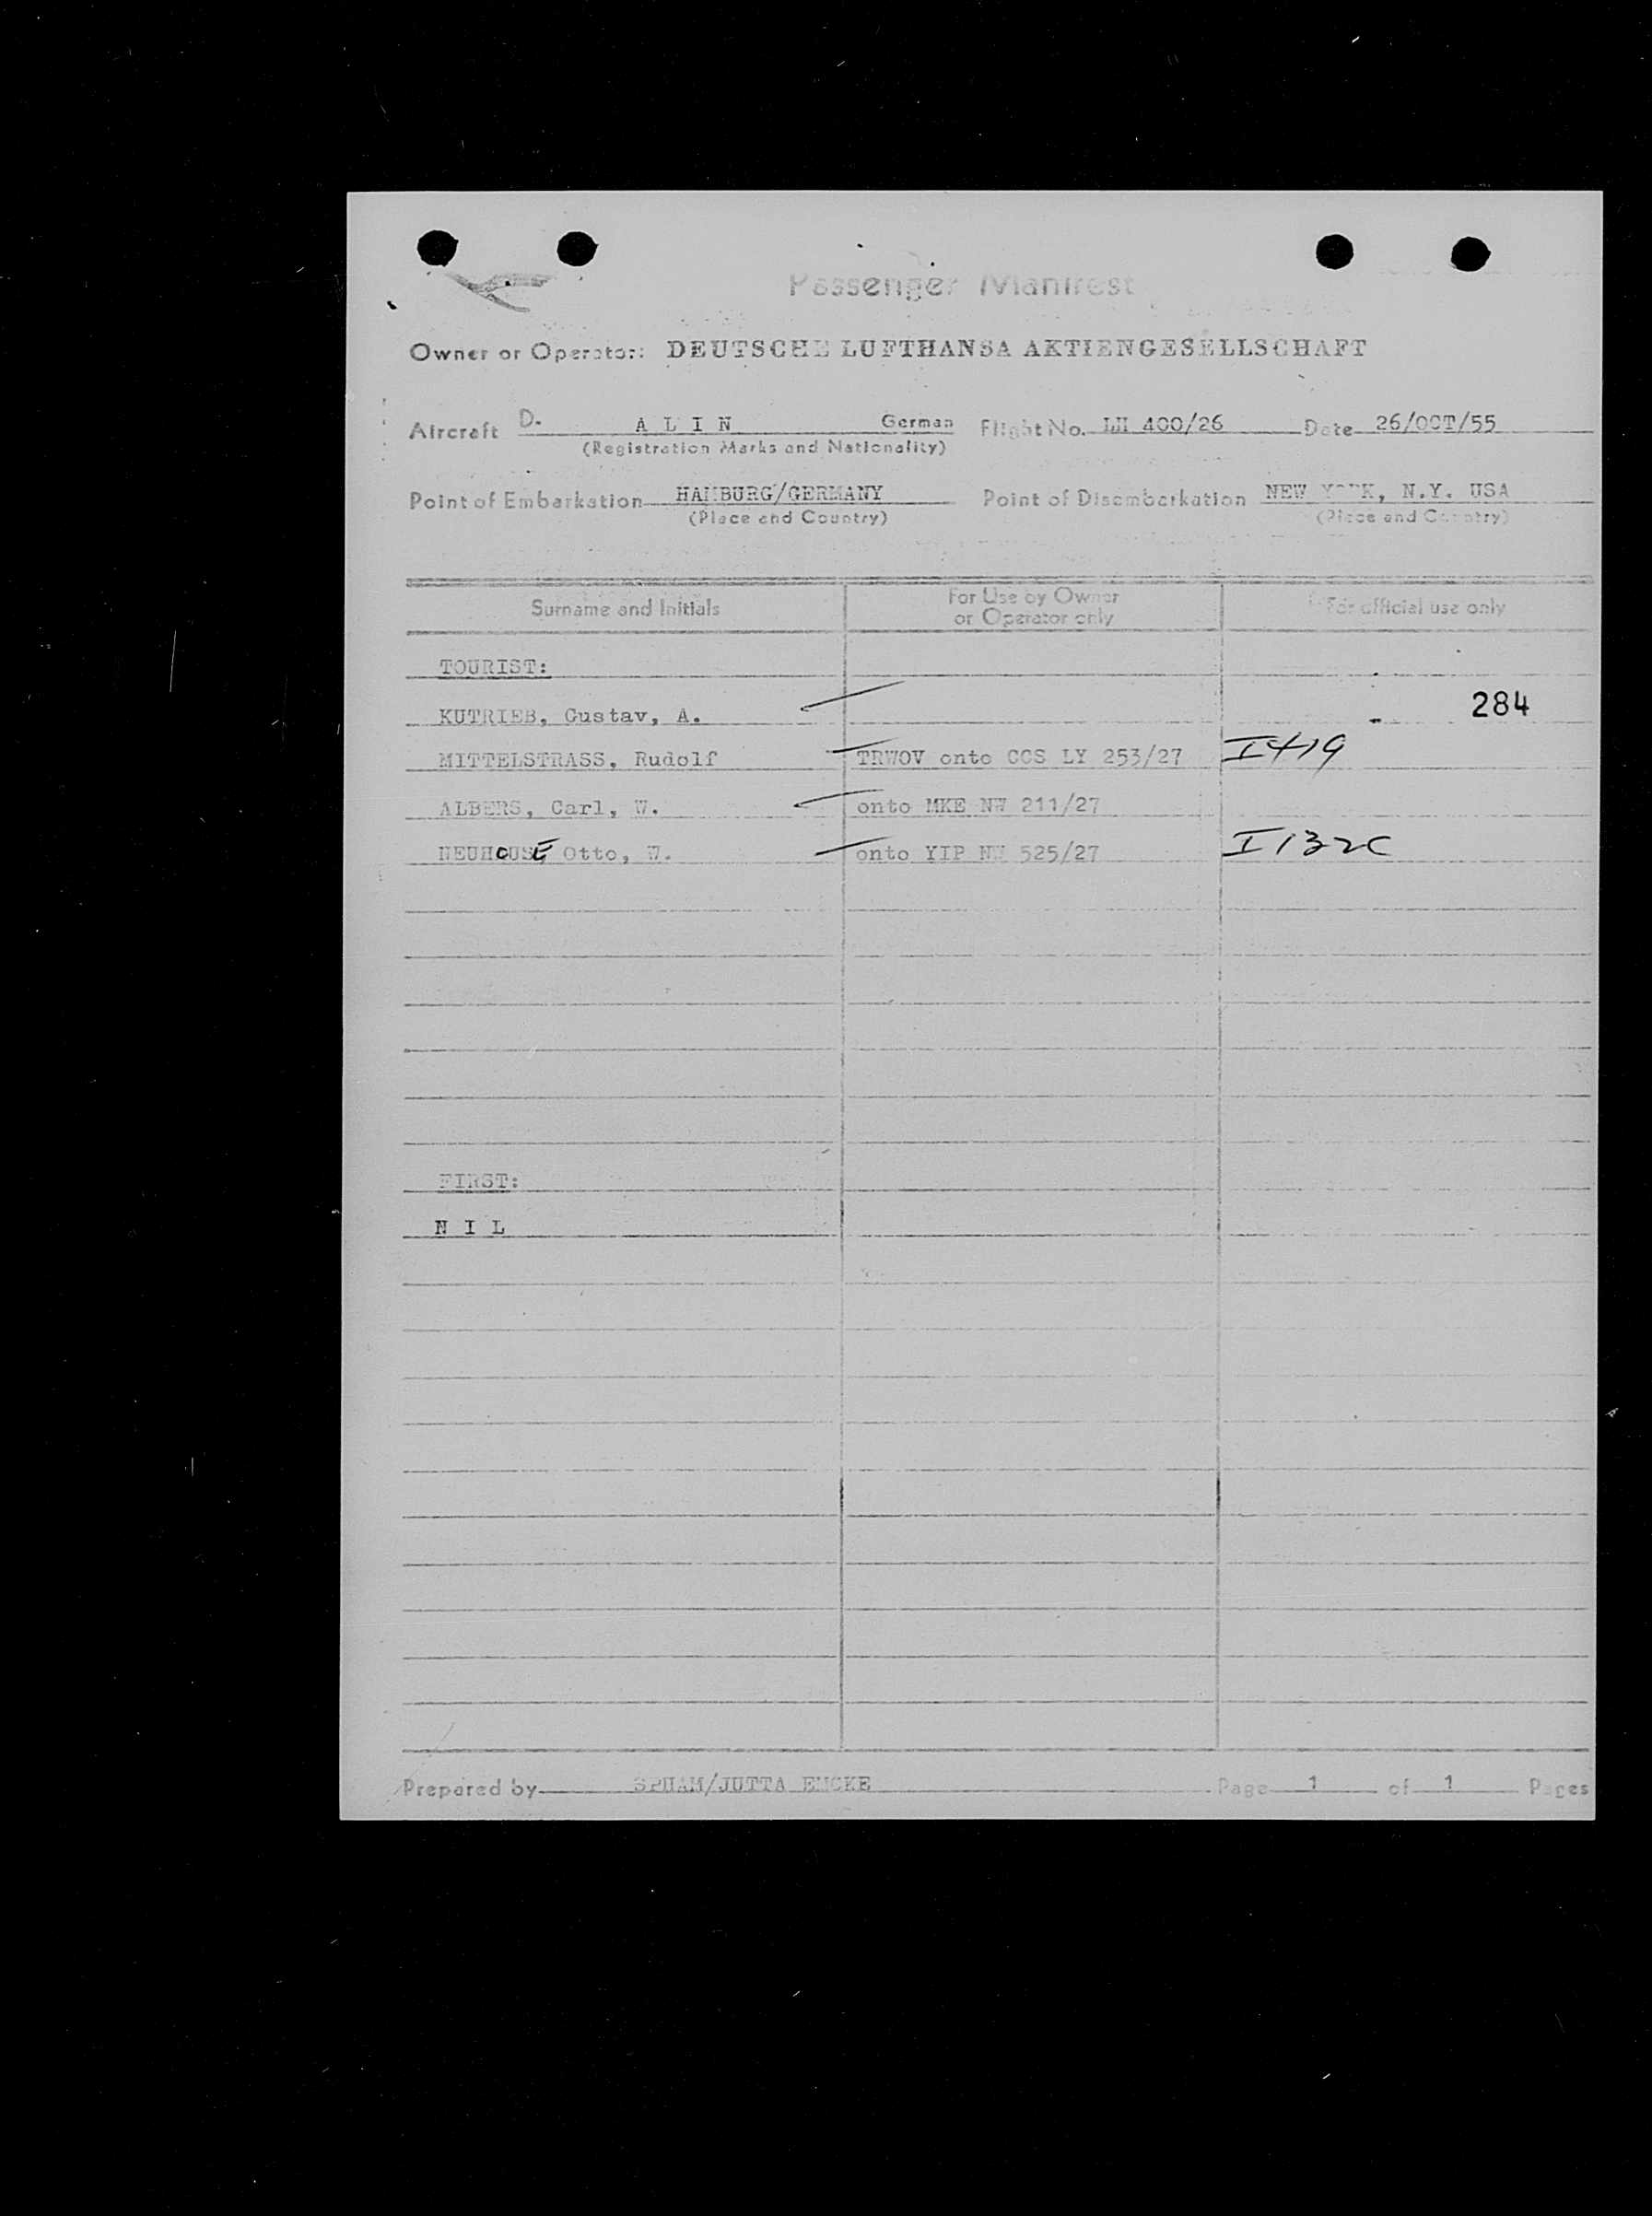 Passenger Manifest
Owner or Operator: DEUTSCHE LUFTHANSA AKTIENGESELLSCHAFT
Aircraft D- A L I N German Flight No. LH 400/26 Date 26/OCT/55
(Registration Marks and Nationality)
Point of Embarkation HAMBURG/GERMANY Point of Disembarkation NEW YORK, N.Y. USA
(Place and Country) (Place and Country)
Surname and Initials For Use by Owner or Operator only For official use only
TOURIST:
KUTRIEB, Gustav, A. 284
MITTELSTRASS, Rudolf TRWOV onto CCS LY 253/27 I419
ALBERS, Carl, W. onto MKE NW 211/27
NEUHOUSE Otto, W. onto YIP NW 525/27 I132C
FIRST:
N I L
Prepared by SPHAM/JUTTA EMCKE Page 1 of 1 Pages